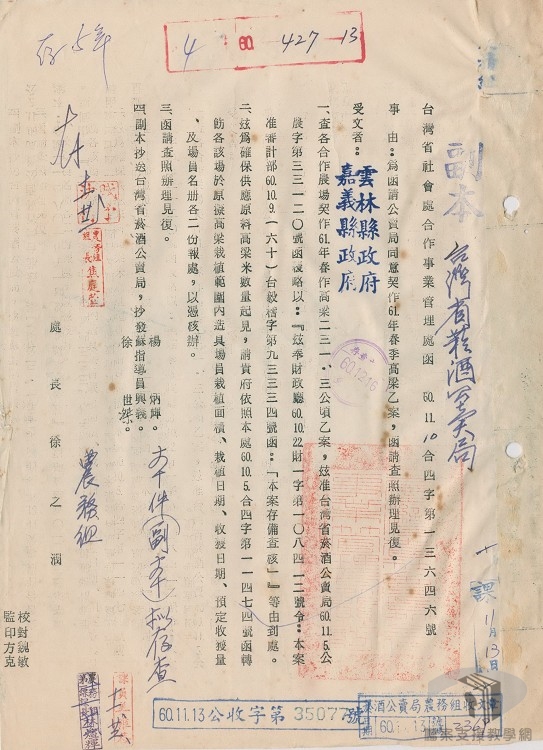 存5年
4 60 427-13
副本
台灣省菸酒公賣局
台灣省社會處合作事業管理處函 60.11.10合四字第一三六四六號
事由：為函請公賣局同意契作61年春季高梁乙案，函請查照辦理見復。
受文者：雲林縣政府
嘉義縣政府
一、查各合作農場契作61年春作高梁二三一．三公頃乙案，茲准台灣省菸酒公賣局60.11.5.公
農字第三三一二〇號函復略以：『茲奉財政廳60.10.22財一字第一〇八四一二號令：本案
准審計部60.10.9.（六十）台毅稽字第九三三四號函：「本案存備查核」』等由到處。
二、茲為確保供應原料高梁米數量起見，請貴府依照本處60.10.5.合四字第一一四七四號函轉
飭各該場於原擬高梁栽植範圍內造具場員栽植面積、栽植日期、收穫日期、預定收穫量
、及場員名册各二份報處，以憑核辦。
三、函請查照辦理見復。
四、副本抄送台灣省菸酒公賣局，抄發蘇指導員興義。
楊炳輝。
徐世榮。
處長徐之潤
校對魏敏
監印方克
本件(副本)擬存查
農務組
十一課
11月13日
60.12.16
60.11.13公收字第35077號
菸酒公賣局農務組收文章
60.11.13
檔案支援教學網